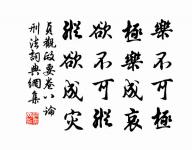 樂不可極
極樂成哀
欲不可縱
縱欲成災
貞觀政要卷八論
刑法詞典網集